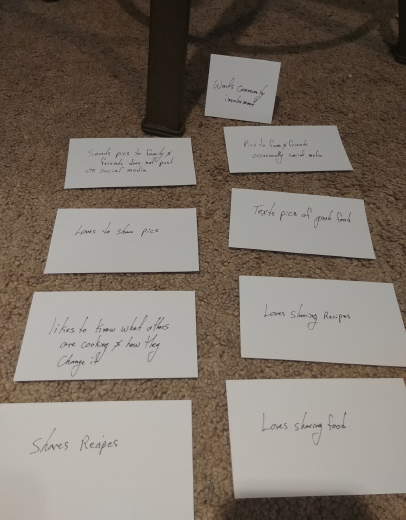 Wants Community
involvement
Sends pics to family &
friends does not post
on social media
Pics to fam & friends
occasionally social media
Loves to share pics
Texts pics of good food
likes to know what others
are cooking & how they
Change it
Loves sharing Recipes
Shares Recipes
Loves sharing food